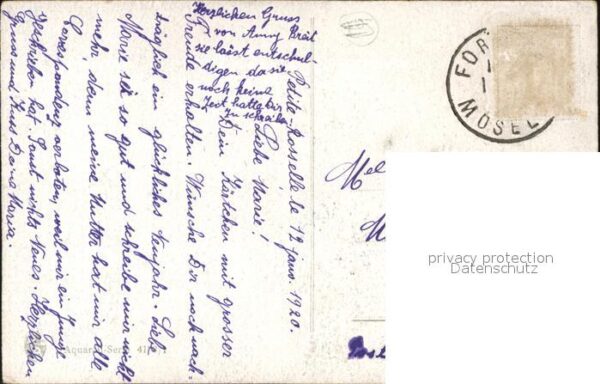 Petite-Rosselle, le 12 janv. 1920.
Liebe Marie!
Dein Kärtchen mit grosser
Freude erhalten. Wünsche Dir noch nach-
träglich ein glückliches Neujahr. Liebe
Marie sei so gut und schreibe mir nicht
mehr, denn meine Mutter hat mir alle
Correspondenz verboten, weil mir ein Junge
geschrieben hat. Sonst nichts Neues. Herzlichen
Gruss und Kuss Deine Maria.
Herzlichen Gruss
von Anny Breit
sie lässt entschul-
digen da sie
noch keine
Zeit hatte Dir
zu schreiben
FOR
MOSEL
Mel
Aquarell Serie
privacy protection
Datenschutz